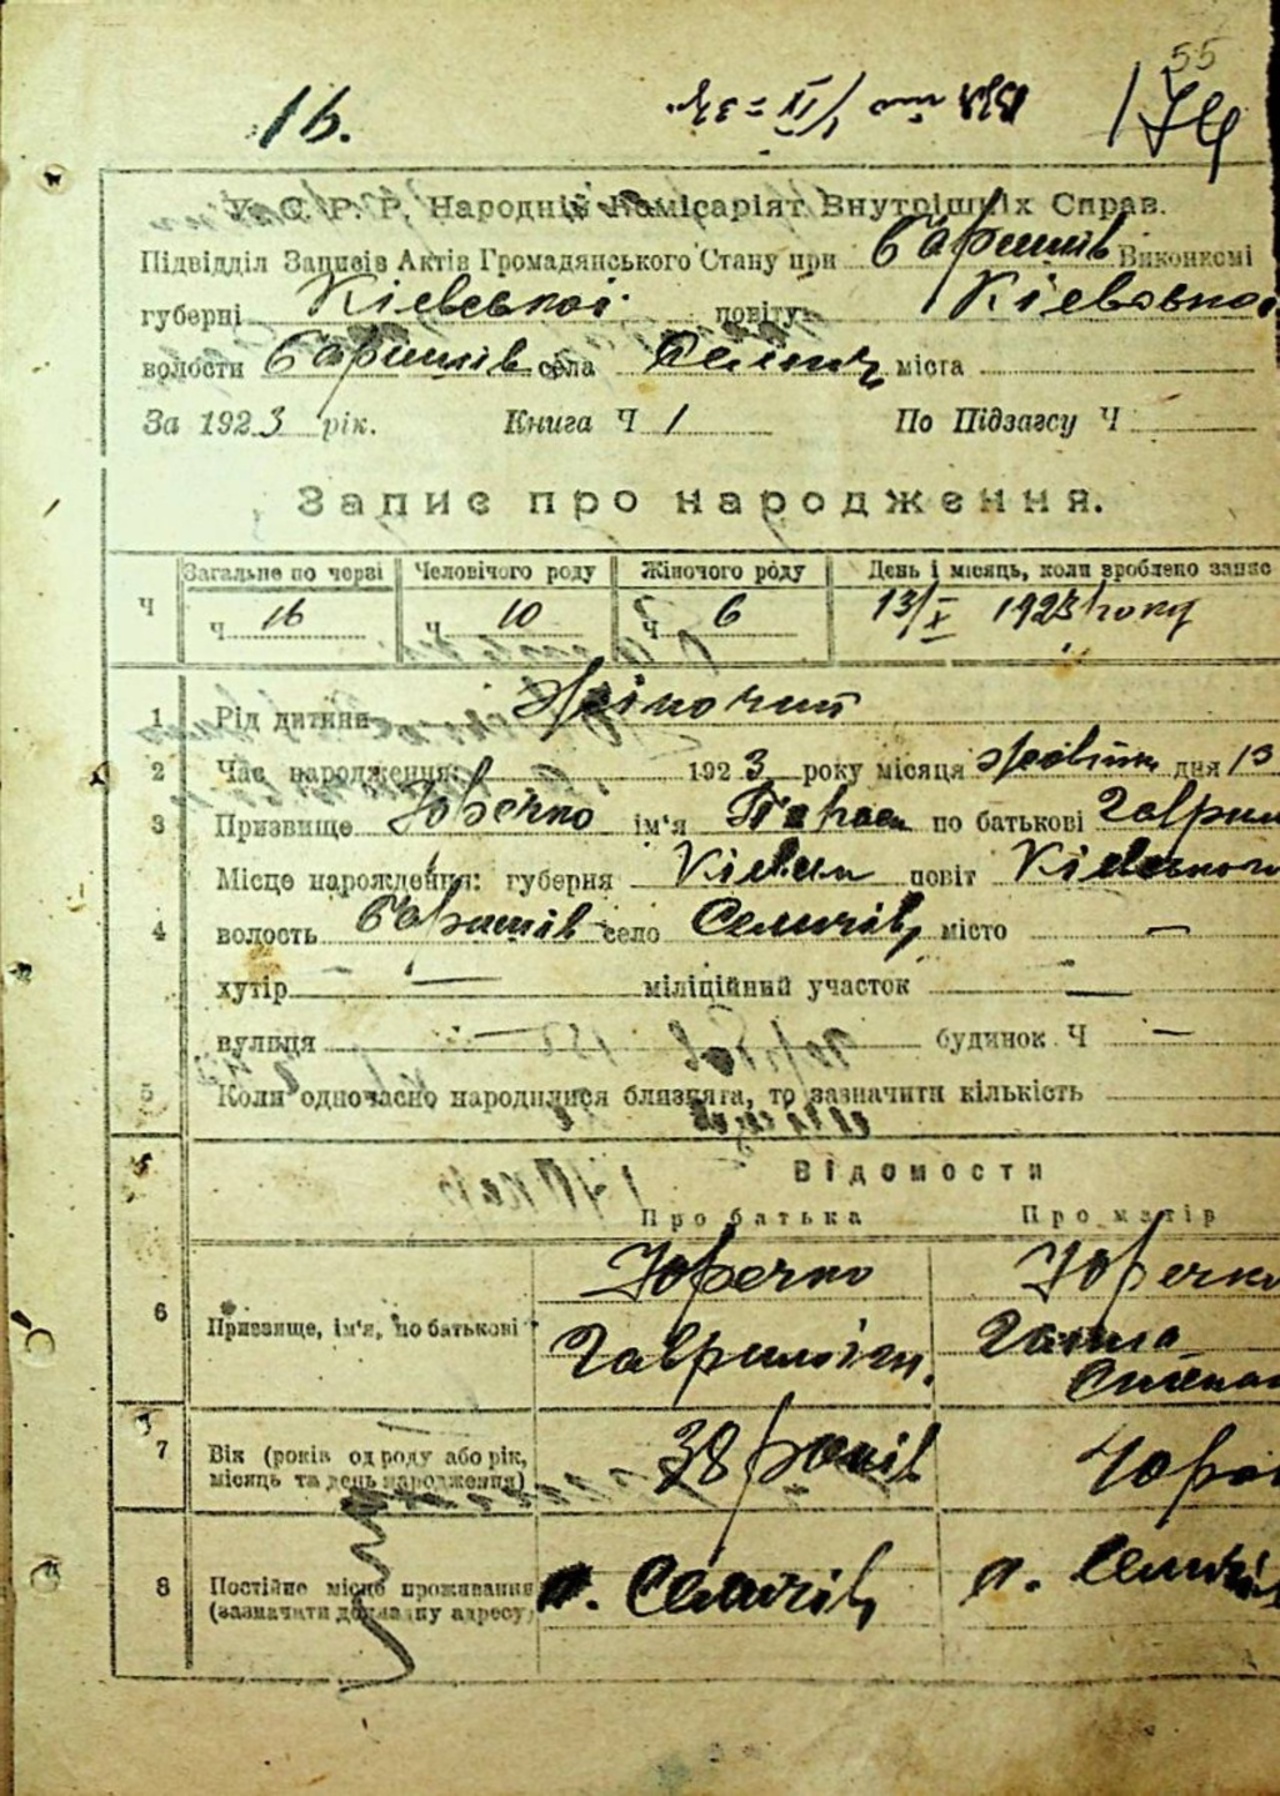 55
16.
174
У. С. Р. Р. Народній Комісаріят Внутрішніх Справ.
Підвідділ Записів Актів Громадянського Стану при Баришів Виконкомі
губерні Кіевської повіту Кіевської
волости Баришів села Селичів міста
За 1923 рік. Книга Ч 1 По Підзагсу Ч
Запис про народження.
Загальне по черзі Человічого роду Жіночого роду День і місяць, коли зроблено запис
Ч Ч 16 Ч 10 Ч 6 13/X 1923 року
1 Рід дитини Жіночий
2 Час народження: 1923 року місяця Жовтня дня 13
3 Призвище Юречко ім'я по батькові Гаврил
Місце нарождення: губерня Кіевськ повіт Кіевського
4 волость Баришів село Селичів місто —
хутір — міліційний участок —
вулиця — будинок Ч —
5 Коли одночасно народилися близнята, то зазначити кількість
Відомости
Про батька Про матір
6 Призвище, ім'я, по батькові Юречко Юречко
Ганна
7 Вік (років од роду або рік, місяць та день народження) 38 років 40 рок
8 Постійне місце проживання (зазначати докладну адресу) с. Селичів с. Селичів